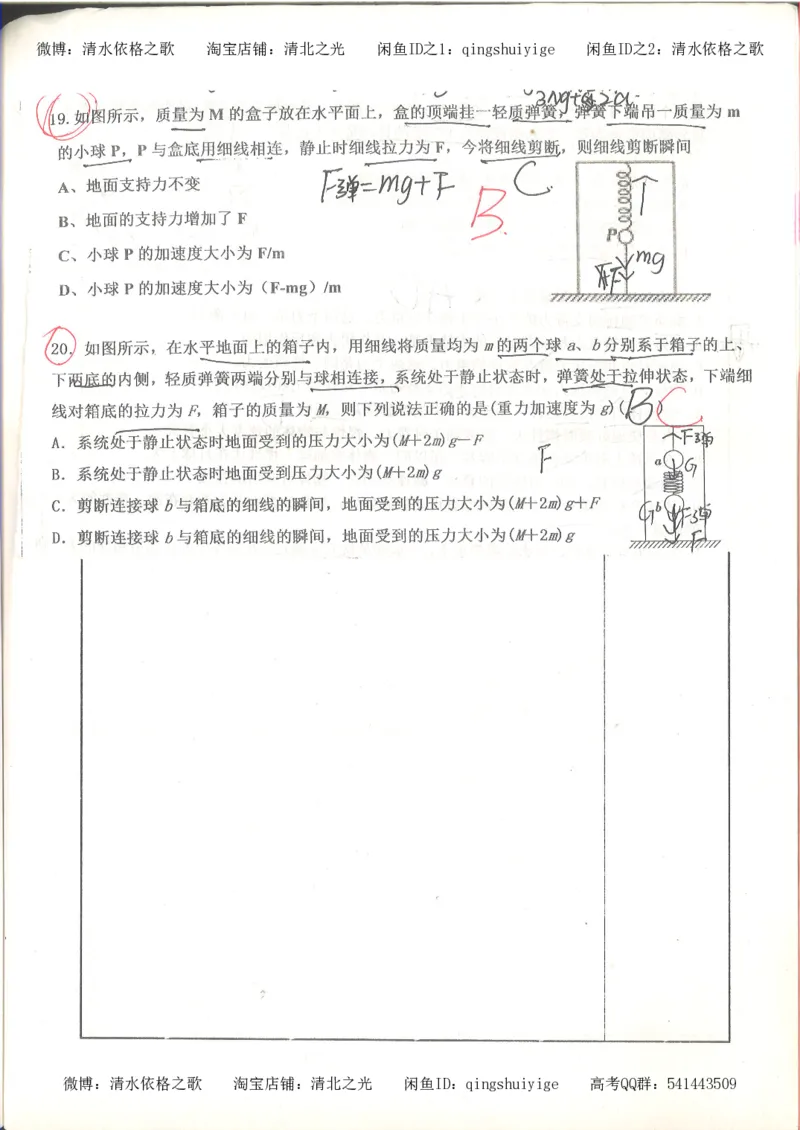 微博：清水依格之歌　　淘宝店铺：清北之光　　闲鱼ID之1：qingshuiyige　　闲鱼ID之2：清水依格之歌
19.如图所示，质量为 M 的盒子放在水平面上，盒的顶端挂一轻质弹簧，弹簧下端吊一质量为 m
的小球 P，P 与盒底用细线相连，静止时细线拉力为 F，今将细线剪断，则细线剪断瞬间
A、地面支持力不变
F弹=mg+F
C.
B.
B、地面的支持力增加了 F
P
mg
C、小球 P 的加速度大小为 F/m
D、小球 P 的加速度大小为（F-mg）/m
20. 如图所示，在水平地面上的箱子内，用细线将质量均为 m 的两个球 a、b 分别系于箱子的上、
下两底的内侧，轻质弹簧两端分别与球相连接，系统处于静止状态时，弹簧处于拉伸状态，下端细
线对箱底的拉力为 F，箱子的质量为 M，则下列说法正确的是(重力加速度为 g)( B )
C
A．系统处于静止状态时地面受到的压力大小为(M＋2m)g－F
F弹
a
G
B．系统处于静止状态时地面受到压力大小为(M＋2m)g
F
C．剪断连接球 b 与箱底的细线的瞬间，地面受到的压力大小为(M＋2m)g＋F
G
b
F弹
D．剪断连接球 b 与箱底的细线的瞬间，地面受到的压力大小为(M＋2m)g
F
微博：清水依格之歌　　淘宝店铺：清北之光　　闲鱼ID：qingshuiyige　　高考QQ群：541443509